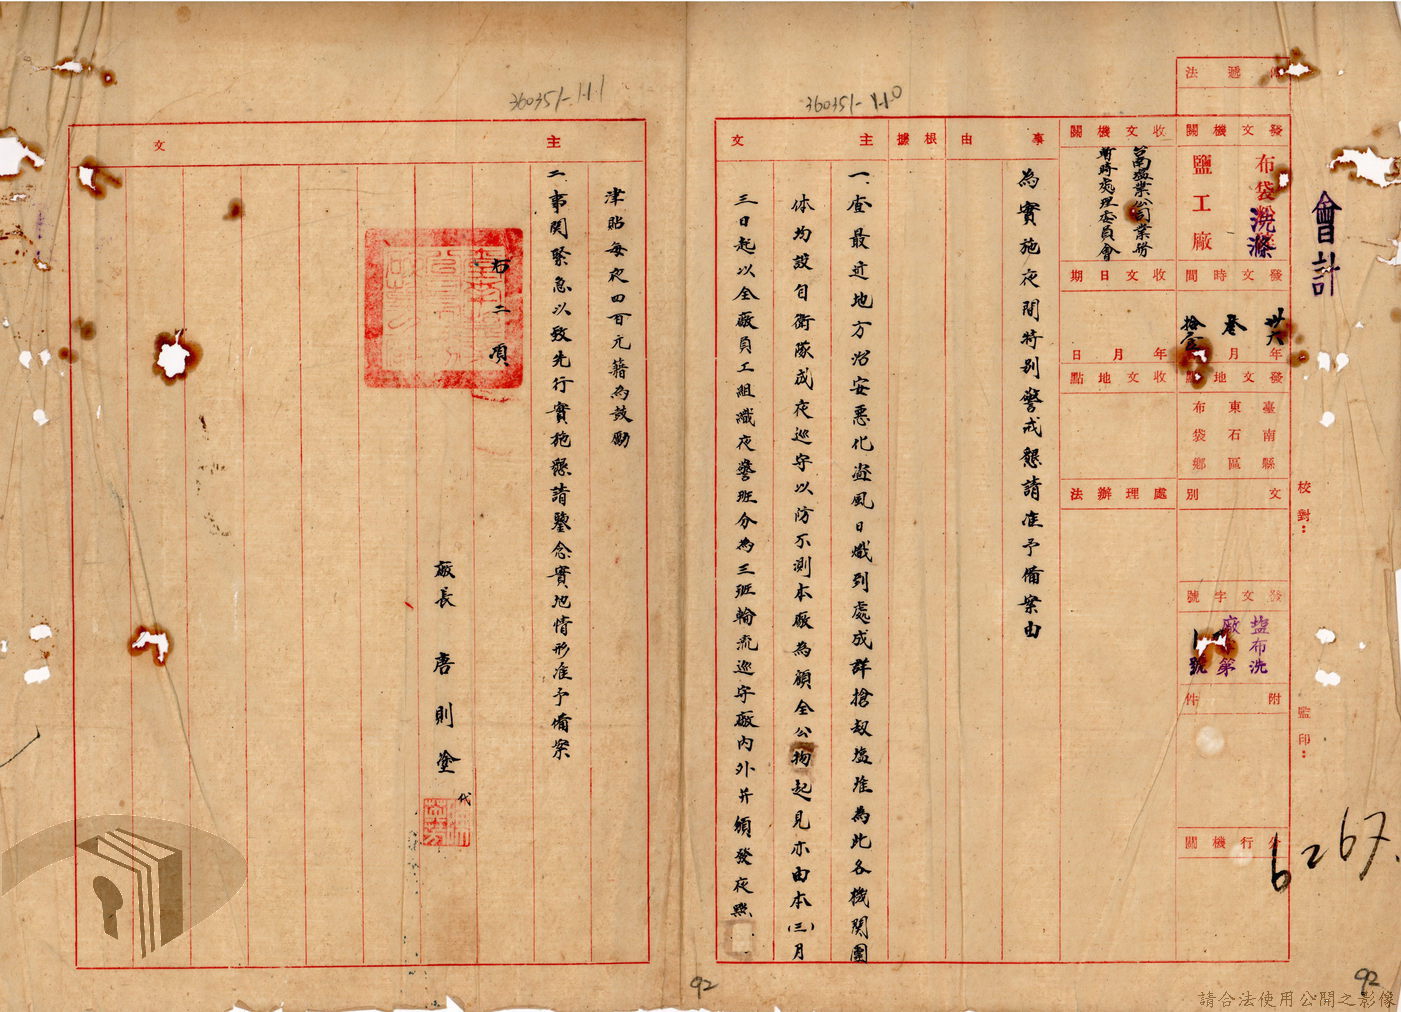 會計
校對：
監印：
遞法
發文機關
布袋洗滌
鹽工廠
發文時間
卅六年
叁月
拾叁日
發文地點
臺南縣
東石區
布袋鄉
文別
發文字號
塩布洗
廠第
號
附件
公行機關
收文機關
台南塩業公司業務
暫時處理委員會
收文日期
年月日
收文地點
處理辦法
事由
為實施夜間特別警戒懇請准予備案由
根據
主文
一、查最近地方治安惡化盜風日熾到處成群搶刼塩堆為此各機關團
体均設自衛隊成夜巡守以防不測本廠為顧全公物起見亦由本(三)月
三日起以全廠員工組織夜警班分為三班輪流巡守廠內外并頒發夜點
360351-110
主文
津貼每夜四百元藉為鼓勵
二、事関緊急以致先行實施懇請鑒念實地情形准予備案
右二項
廠長 唐則塗
代
360351-111
6267.
92
92
請合法使用公開之影像